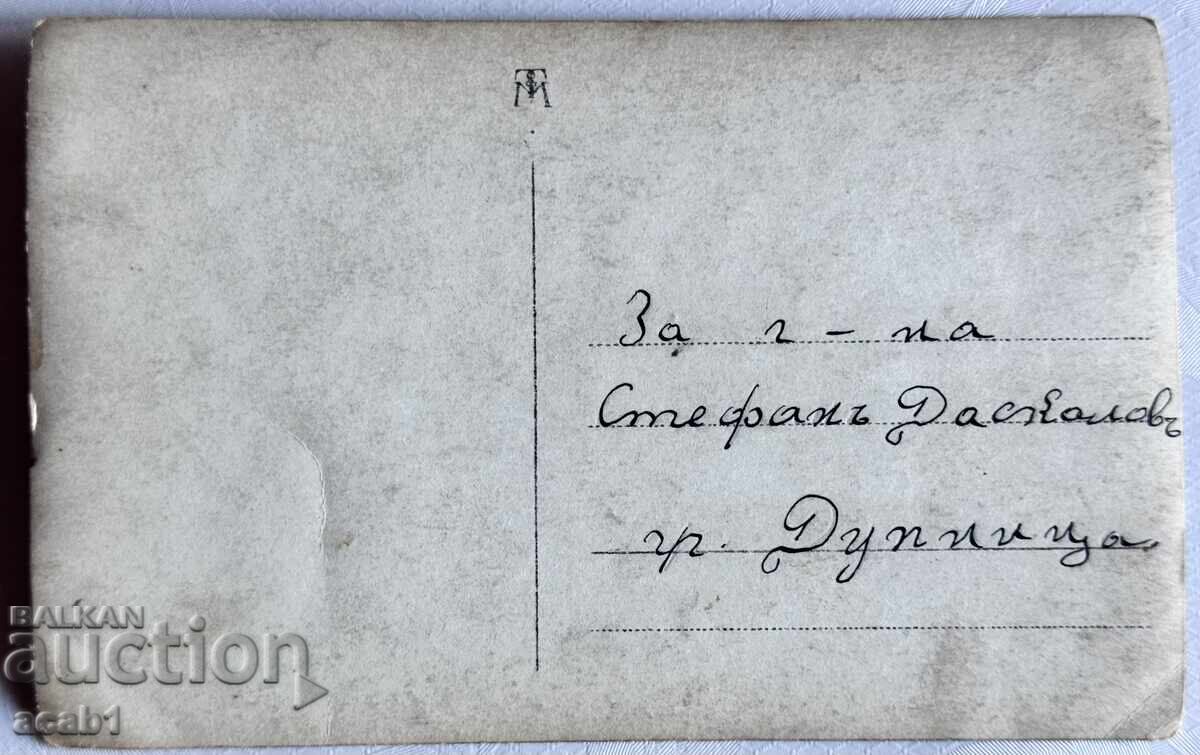 За г-на
Стефанъ Даскаловъ
гр. Дупница.
BALKAN
auction
acab1